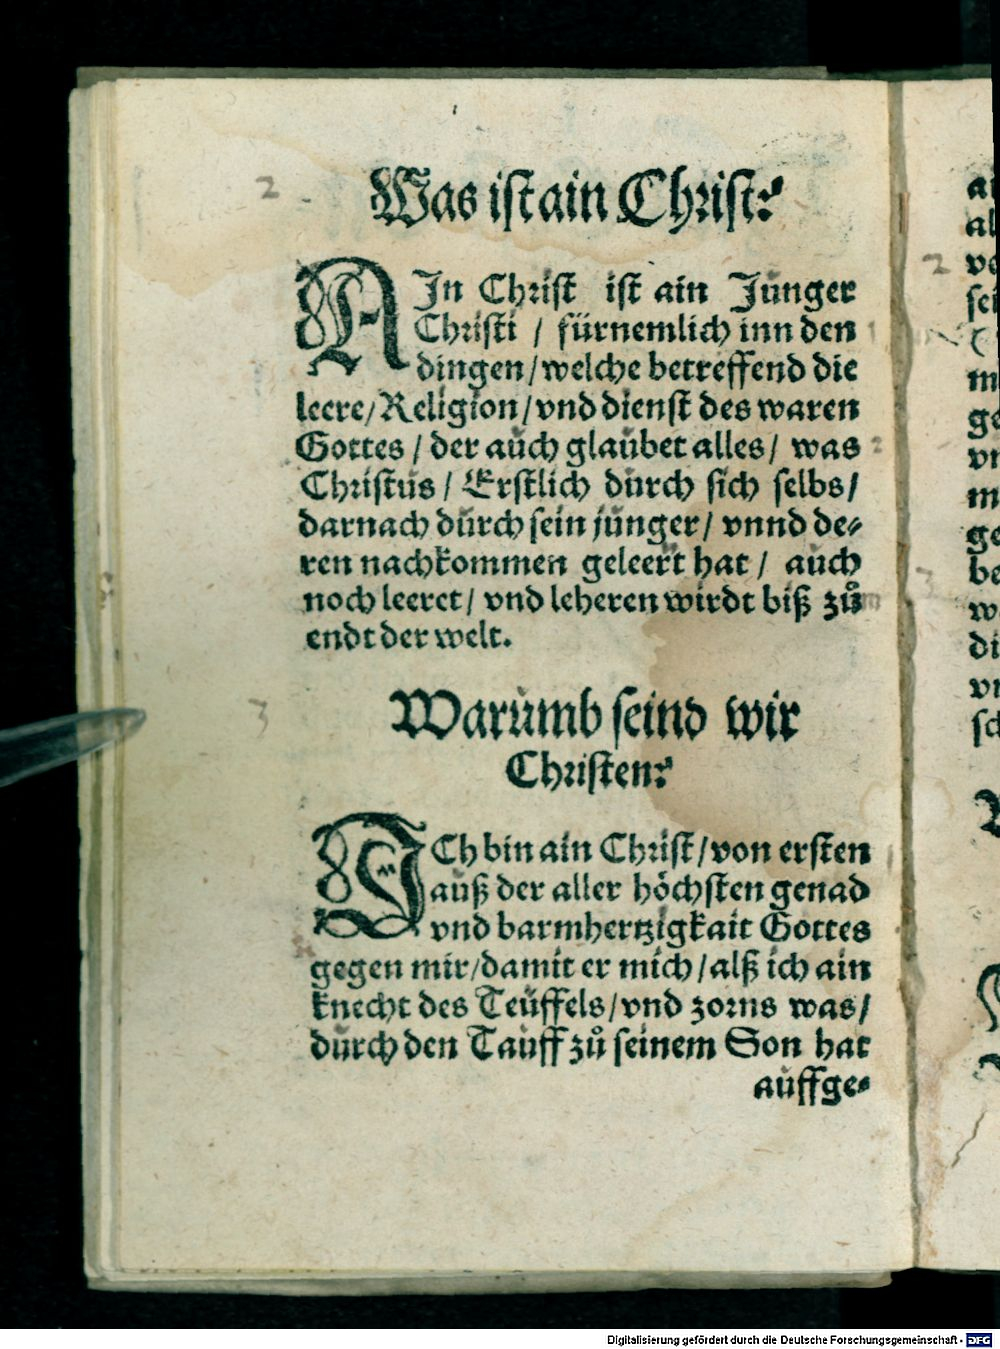 2
Was ist ain Christ?
AIn Christ ist ain Jünger
Christi / fürnemlich inn den
dingen / welche betreffend die
leere / Religion / vnd dienst des waren
Gottes / der auch glaubet alles / was
Christus / Erstlich durch sich selbs /
darnach durch sein jünger / vnnd de-
ren nachkommen geleert hat / auch
noch leeret / vnd leheren wirdt biß zuͦ
endt der welt.
3
Warumb seind wir
Christen?
ICh bin ain Christ / von ersten
auß der aller höchsten genad
vnd barmhertzigkait Gottes
gegen mir / damit er mich / alß ich ain
knecht des Teüffels / vnd zorns was /
durch den Tauff zuͦ seinem Son hat
auffge-
2
Digitalisierung gefördert durch die Deutsche Forschungsgemeinschaft - DFG